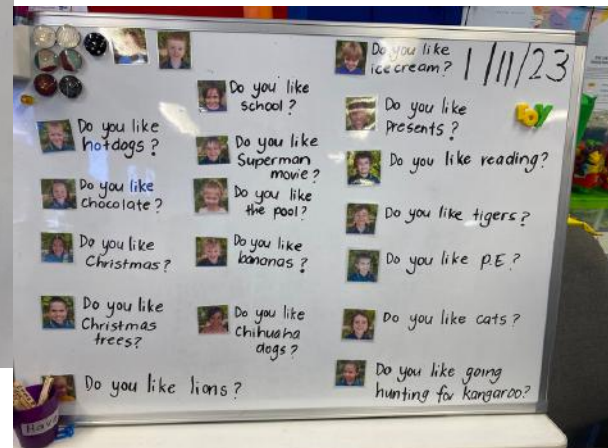 Do you like
hotdogs?
Do you like
chocolate?
Do you like
Christmas?
Do you like
Christmas
trees?
Do you like lions?
Do you like
school?
Do you like
Superman
movie?
Do you like
the pool?
Do you like
bananas?
Do you like
Chihuaha
dogs?
Do you like
ice cream?
Do you like
Presents?
Do you like reading?
Do you like tigers?
Do you like P.E?
Do you like cats?
Do you like going
hunting for kangaroo?
1/11/23